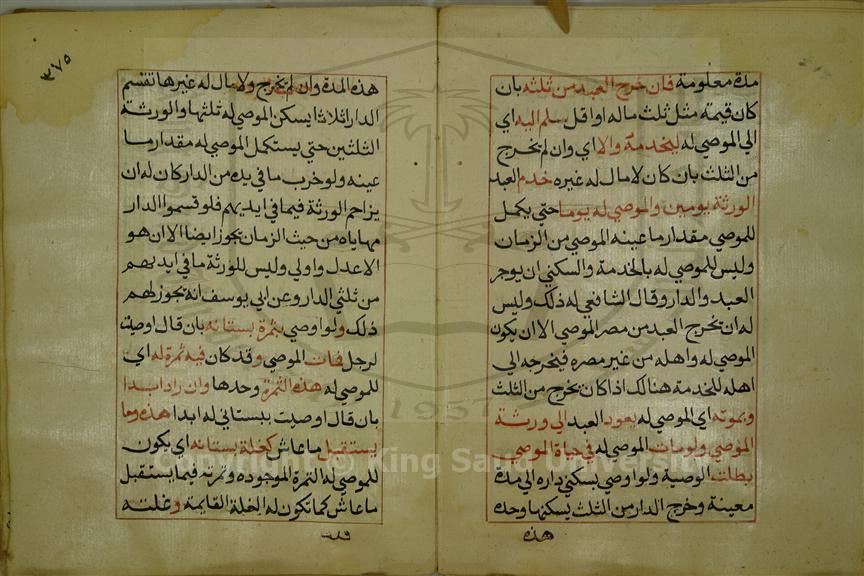 مدة معلومة فان خرج العبد من ثلثه بان
كان قيمته مثل ثلث ماله او اقل سلم اليه اي
الي الموصي له ليخدمه والا اي وان لم يخرج
من الثلث بان كان لا مال له غيره خدم العبد
الورثة يومين والموصي له يوما حتي يكمل
للموصي مقدار ما عينه الموصي من الزمان
وليس للموصي له بالخدمة والسكني ان يوجر
العبد والدار وقال الشافعي له ذلك وليس
له ان يخرج العبد من مصر الموصي الا ان يكون
الموصي له واهله من غير مصره فيخرجه الي
اهله للخدمة هنالك اذا كان يخرج من الثلث
وبموته اي الموصي له يعود العبد الي ورثة
الموصي ولو مات الموصي له في حياة الموصي
بطلت الوصية ولو اوصي بسكني داره الي مدة
معينة وخرج الدار من الثلث يسكنها وحده
هذه
٣٧٥
هذه المدة وان لم يخرج ولا مال له غيرها تقسم
الدار اثلاثا يسكن الموصي له ثلثها والورثة
الثلثين حتي يستكمل الموصي له مقدار ما
عينه ولو خرب ما في يده من الدار كان له ان
يزاحم الورثة فيما في ايديهم فلو قسموا الدار
مهاياه من حيث الزمان يجوز ايضا الا ان هو
الاعدل واولي وليس للورثة ما في ايديهم
من ثلثي الدار وعن ابي يوسف انه يجوز لهم
ذلك ولو اوصي بثمرة بستانه بان قال اوصيت
لرجل فمات الموصي وقد كان فيه ثمرة له اي
للموصي له هذه الثمرة وحدها وان زاد ابدا
بان قال اوصيت ببستاني له ابدا هذه وما
يستقبل ما عاش كغلة بستانه اي يكون
للموصي له الثمرة الموجوده وثمرته فيما يستقبل
ما عاش كما تكون له الغلة القايمة وغلته
King Saud University
1957